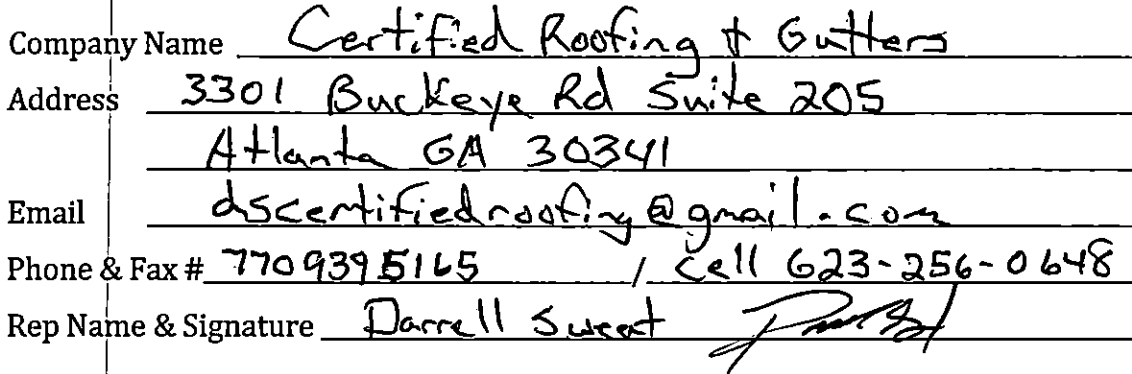 Company Name Certified Roofing & Gutters
Address 3301 Buckeye Rd Suite 205
Atlanta GA 30341
Email dscertifiedroofing@gmail.com
Phone & Fax # 7709395165 / cell 623-256-0648
Rep Name & Signature Darrell Sweat